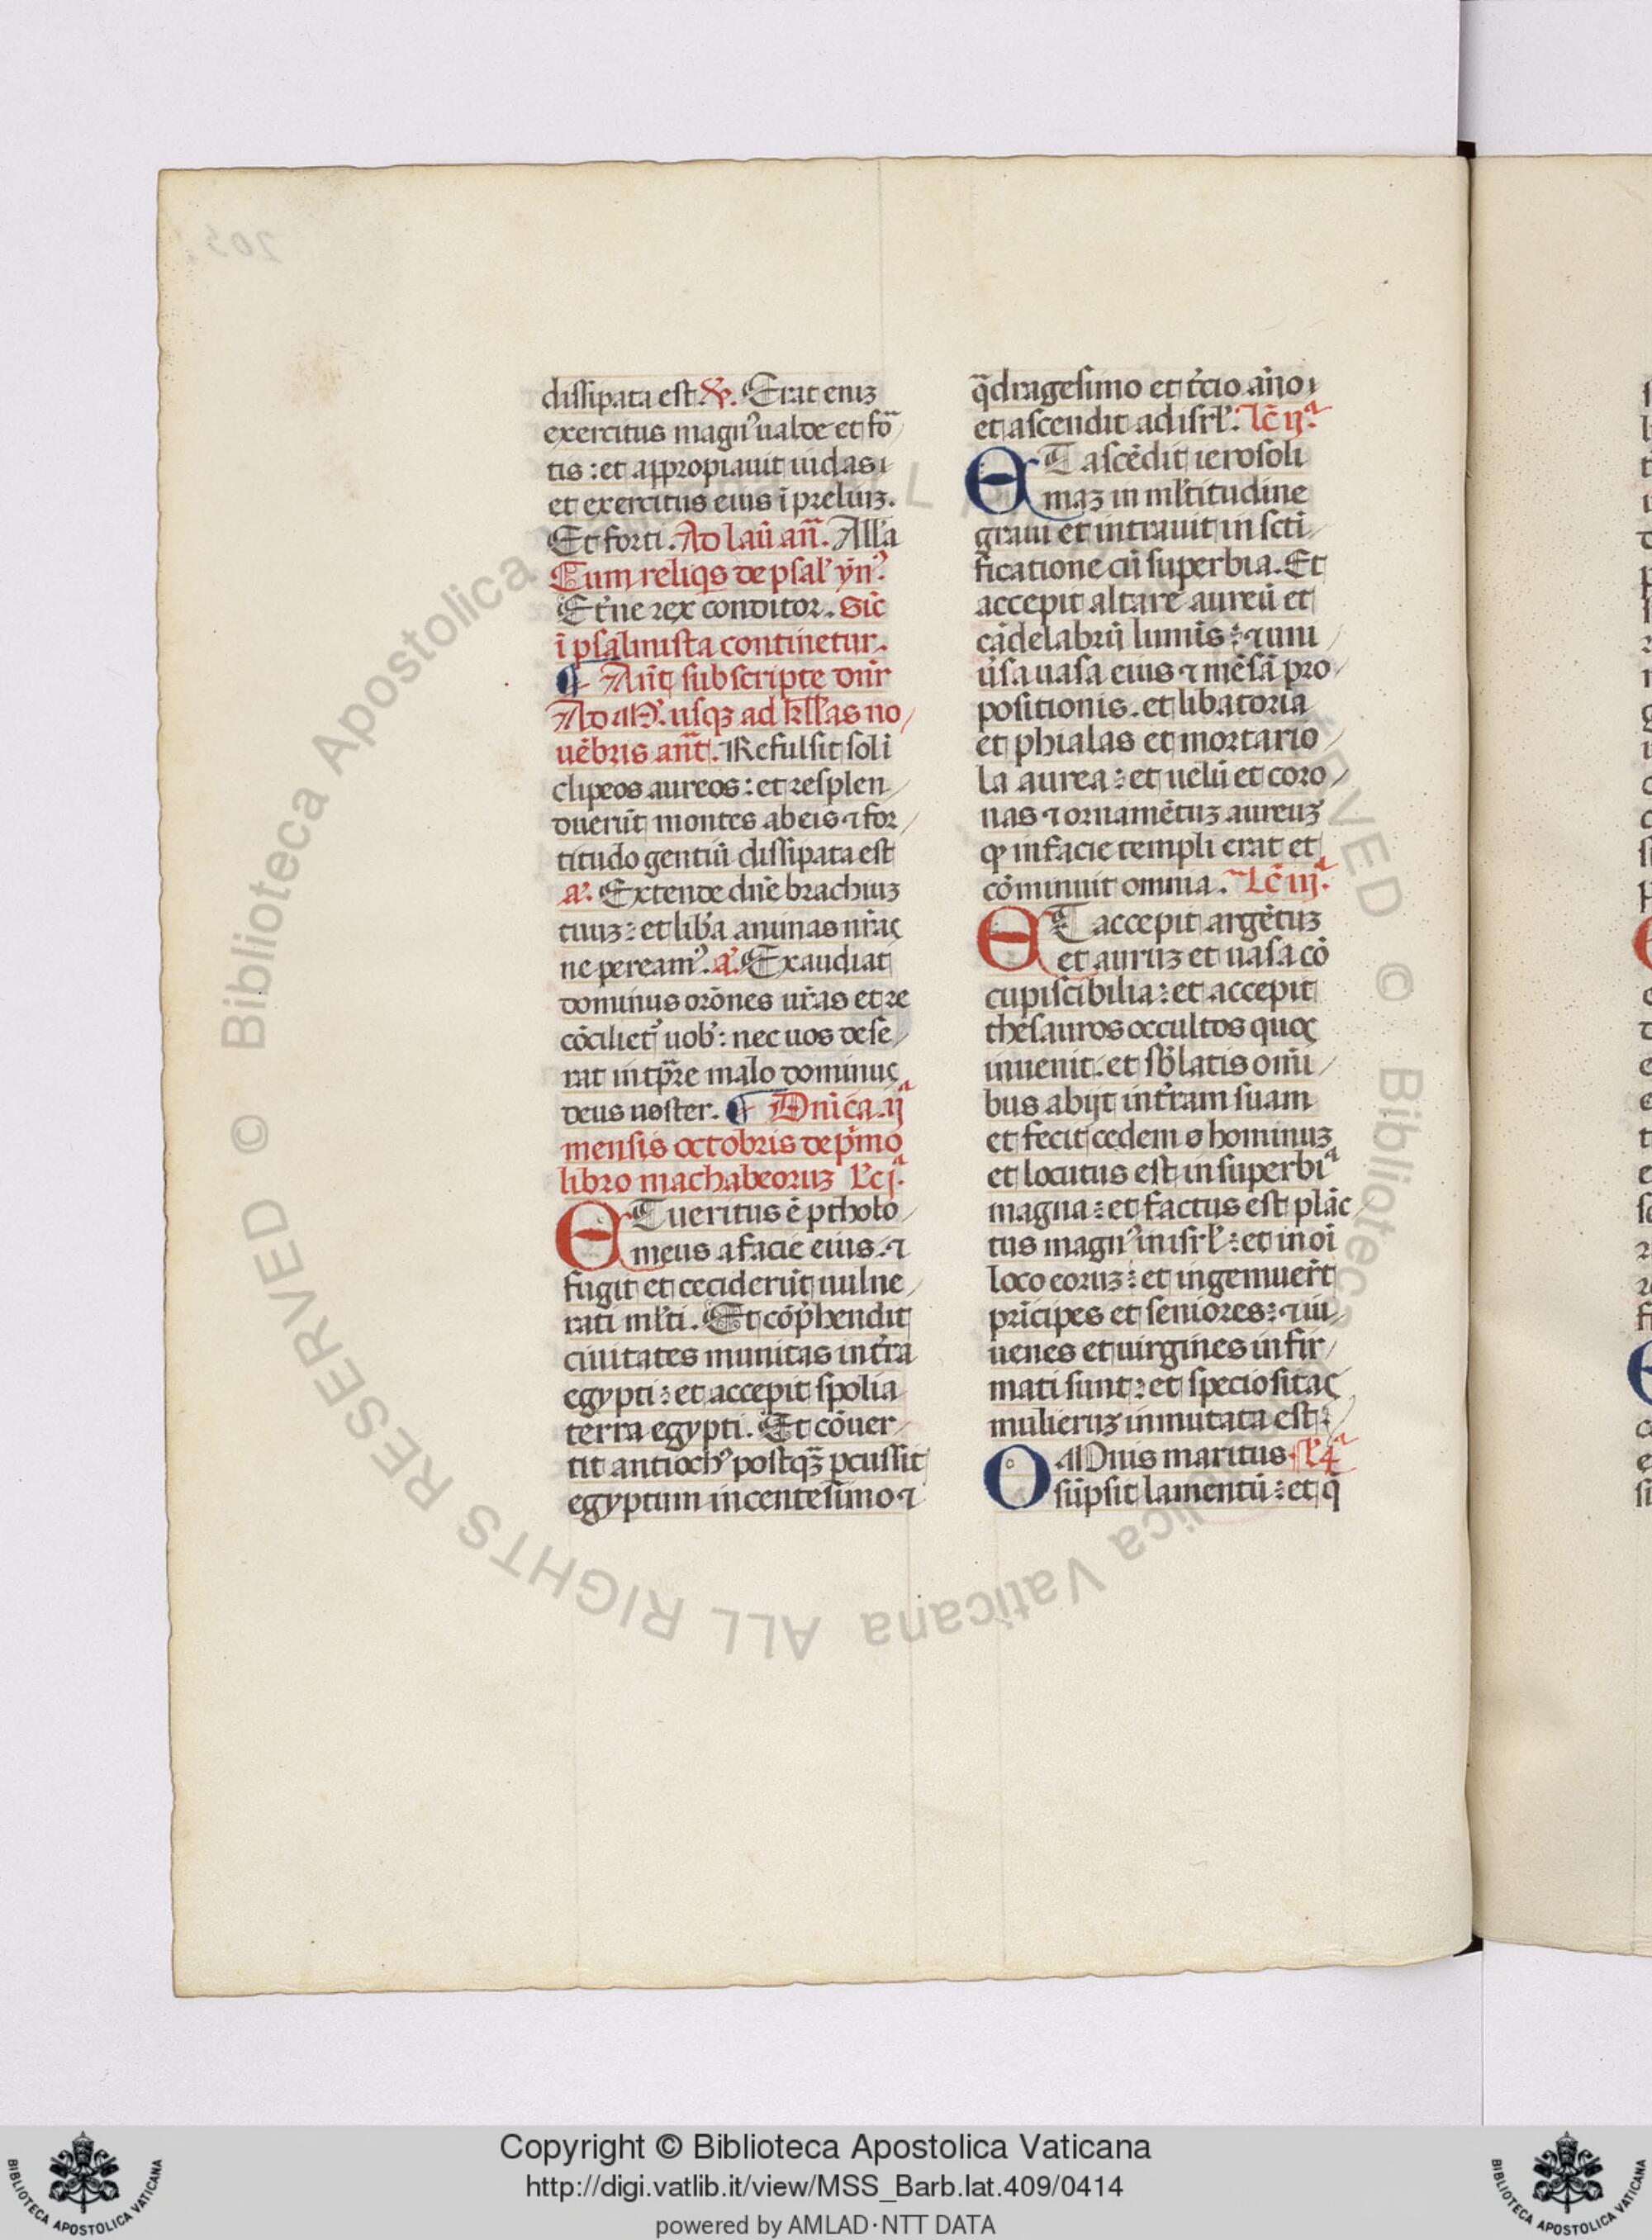 dissipata est. ℣. Erat eniʒ
exercitus magn᾽ ualde et fo
tis : et appropiauit iudas
et exercitus eius ī preliuʒ.
Et forti. Ad lau᷑ añ. Alla
Cum reliqs de psal᷑ yn᷑
Et᷑ne rex conditor. Sic᷑
ī psalmista continetur.
¶ Añt subscripte dn̄r
Ad M᷑. usqʒ ad kl᷑las no
uēbris añt. Refulsit sol ī
clipeos aureos : et resplen
duerūt montes ab eis ⁊ for
titudo gentiū dissipata est
a᷑. Extende dn̄e brachiuʒ
tuuʒ : et lib᷑a animas nr̄as
ne peream᾽. a᷑. Exaudiat
dominus orōnes ur̄as et re
cōciliet᷑ uob᷑ : nec uos dese
rat in tp̄re malo dominus
deus uoster. ¶ Dn̄ica. ijᵃ
mensis octobris de p᷑mo
libro machabeoruʒ Lc᷑ jᵃ.
ET ueritus ē ptholo
meus a facie eius. ⁊
fugit et ceciderūt uulne
rati ml᷑ti. Et cōp᷑hendit
ciuitates munitas in t᷑ra
egypti : et accepit spolia
terra egypti. Et cōuer
tit antioch᾽ postqʒ̄ pcussit
egyptum in centesimo ⁊
q̄dragesimo et t᷑cio āno
et ascendit ad isrl᷑. Lc̄ ijᵃ.
ET ascēdit ierosoli
maʒ in ml᷑titudine
graui et intrauit in scti
ficatione cū superbia. Et
accepit altare aureū et
cādelabrū lumīs : ⁊ uni
u᷑sa uasa eius ⁊ mēsā pro
positionis. et libatoria
et phialas et mortario
la aurea : et uelū et coro
nas ⁊ ornamētuʒ aureuʒ
qͦ in facie templi erat et
cōminuit omnia. Lc̄ iijᵃ.
ET accepit argētuʒ
et auruʒ et uasa cō
cupiscibilia : et accepit
thesauros occultos quos
inuenit. et sb᷑latis omī
bus abijt in t᷑ram suam
et fecit cedem hominuʒ
et locutus est in superbiᵃ
magna : et factus est plāc
tus magn᾽ in isrl᷑ : et in oī
loco eoruʒ : et ingemuer̄t
pr̄icipes et seniores : ⁊ iu
uenes et uirgines infir
mati sunt : et speciositas
mulieruʒ inmutata est.
OMnis maritus. L᷑ 4ᵃ
sūpsit lamentū : et q̄
Copyright © Biblioteca Apostolica Vaticana
http://digi.vatlib.it/view/MSS_Barb.lat.409/0414
powered by AMLAD·NTT DATA